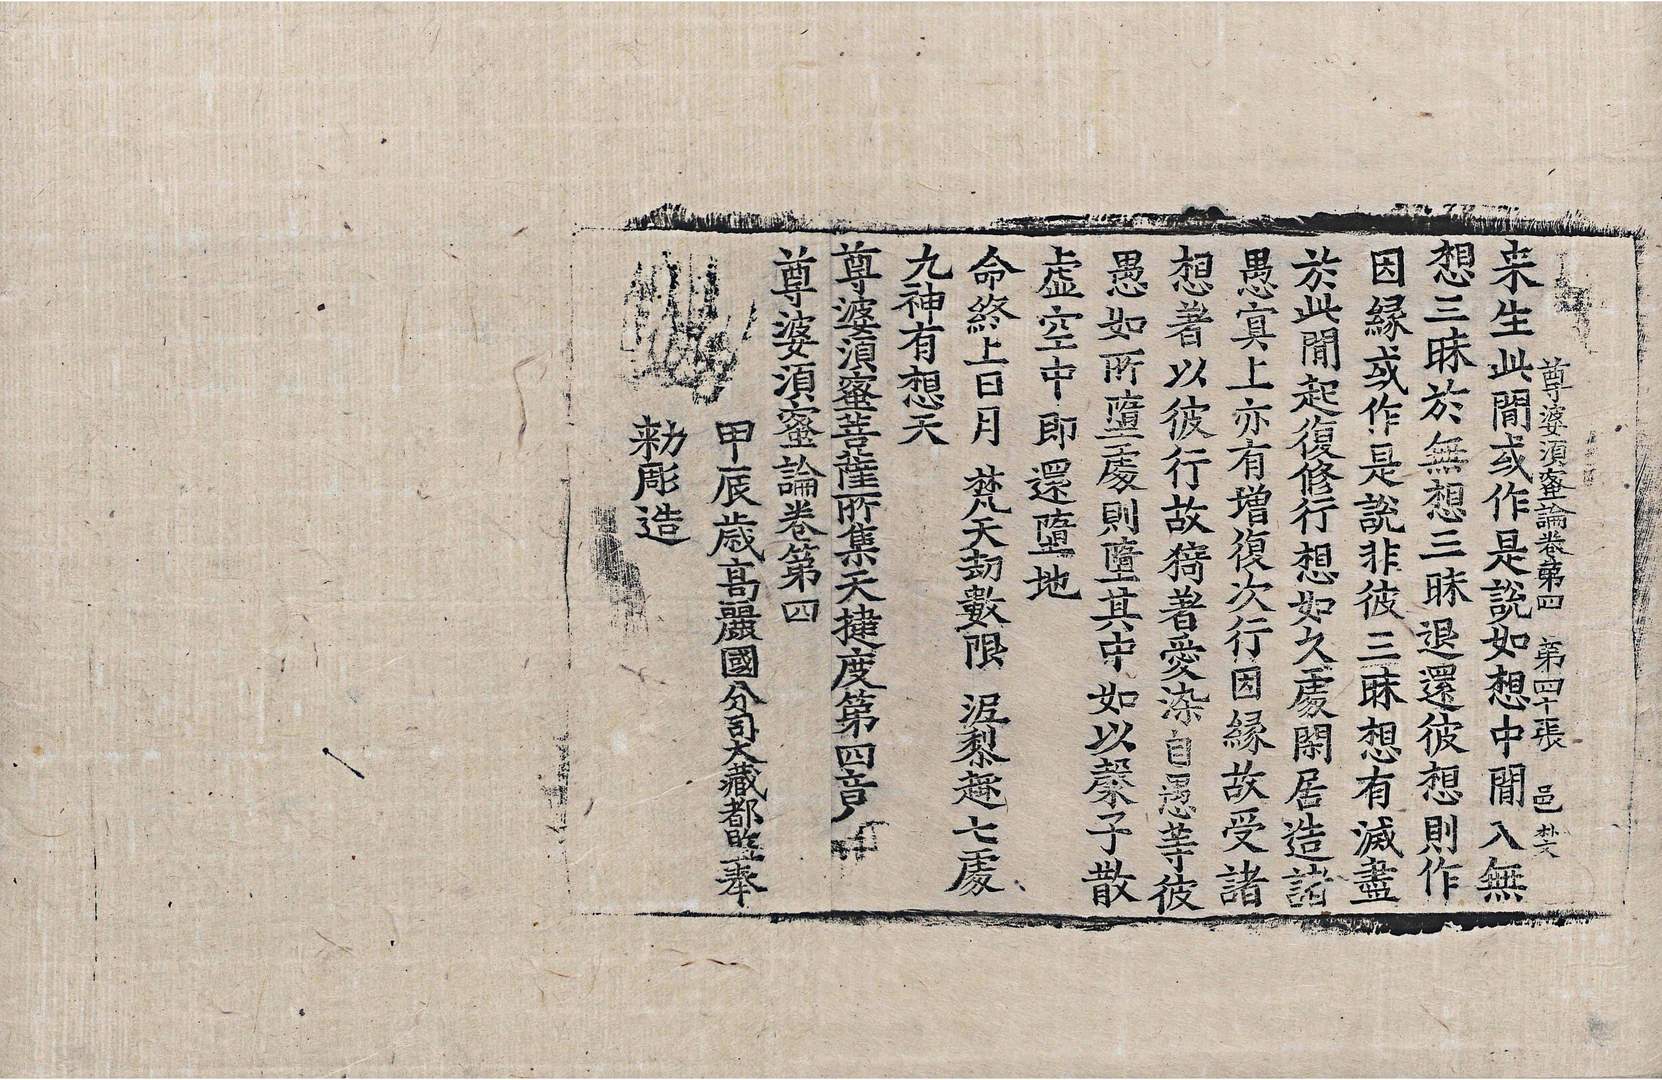 尊婆須蜜論卷第四　第四十張　邑　朴文
来生此閒或作是說如想中閒入無
想三昧於無想三昧退還彼想則作
因緣或作是說非彼三昧想有滅盡
於此閒起復修行想如久處閑居造諸
愚冥上亦有增復次行因緣故受諸
想著以彼行故猗著愛染自愚等彼
愚如所墮處則墮其中如以槃子散
虛空中即還墮地
命終上日月　梵天劫數限　泥黎趣七處
九神有想天
尊婆須蜜菩薩所集天揵度第四竟
尊婆須蜜論卷第四
甲辰歲高麗國分司大藏都監奉
勑彫造